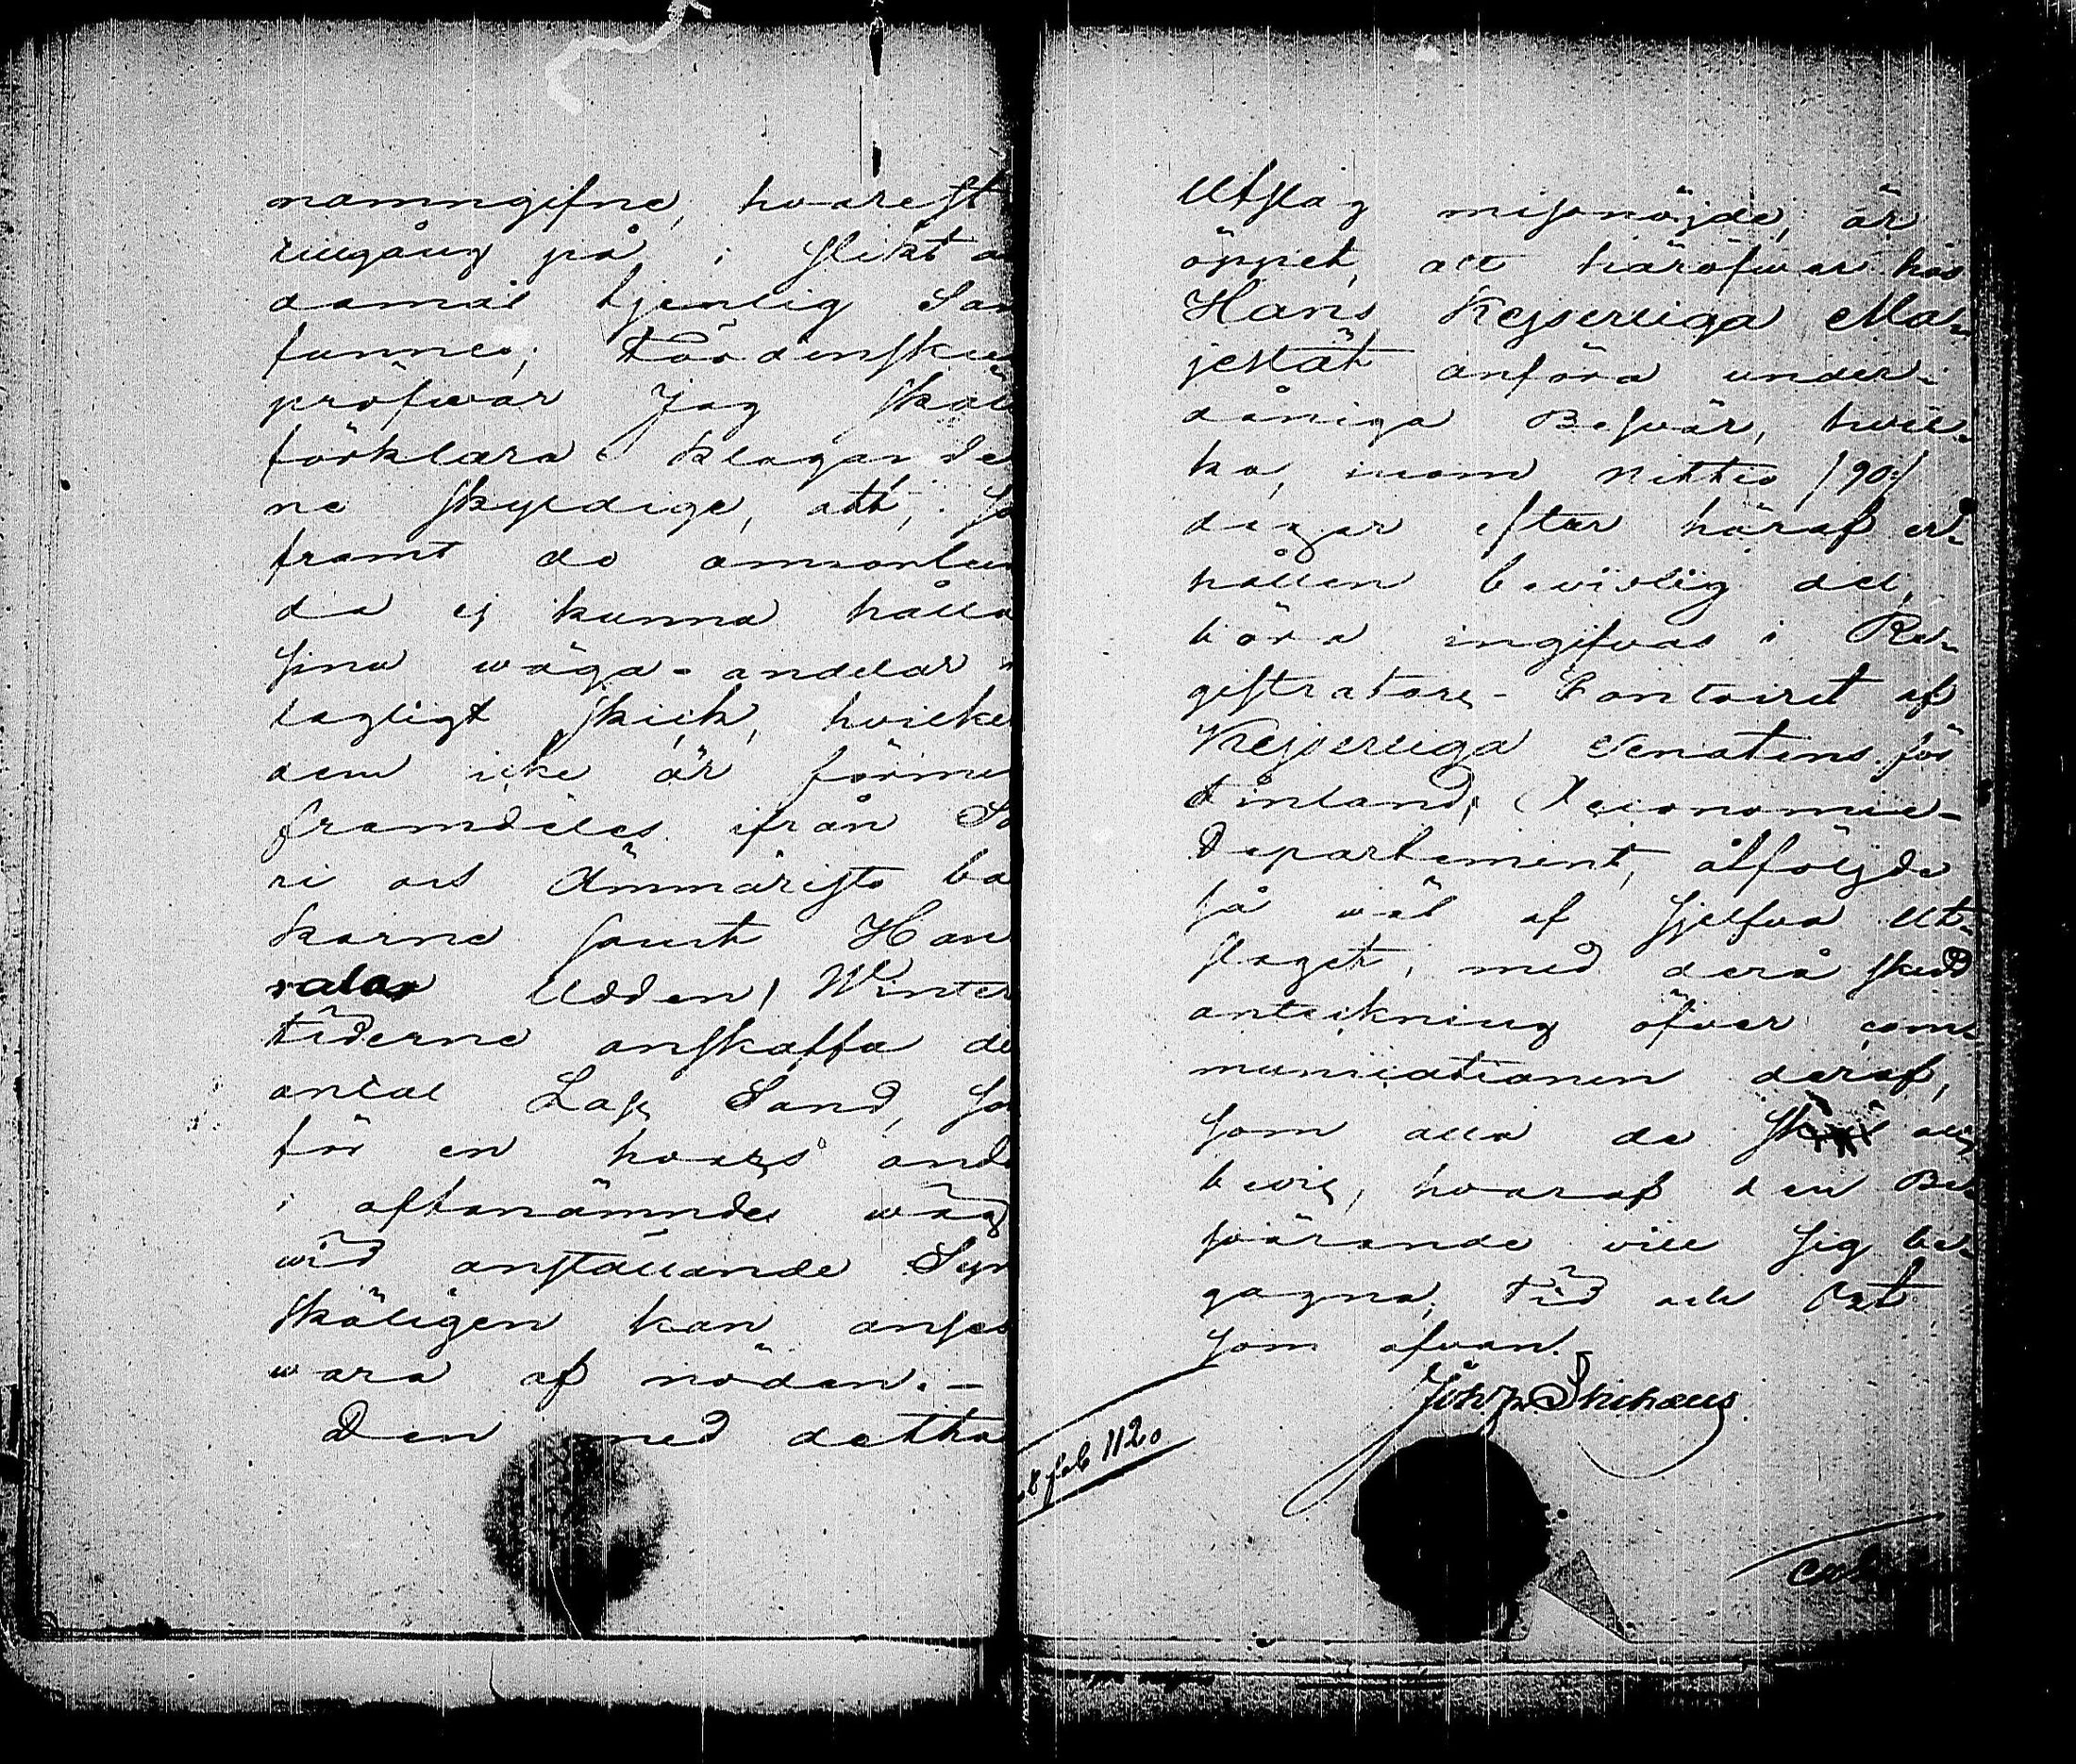 namngifne, hvarest
tillgång på, i slikt a
damål tjenlig San
funnes; Fördenskul
pröfwar Jag skäl
förklara Klagande
ne skyldige, att, så
framt de annorlun
da ej kunna hålla
sina wäga-andelar i
lagligt skick, hvilke
dem icke är förme
framdeles ifrån Sa
ri och Ämmäristo ba
karne samt Han
rala Udden, Winter
tiderne anskaffa de
antal Lass Sand, so
för en hvars ande
i oftanämnde wäg
wid anställande Syn
skäligen kan anses
wara af nöden.-
Den med detta
Utslag missnöjde, är
öppet, att häröfwer hos
Hans Kejserliga Ma-
jestät anföra under-
dåniga Beswär, hwil-
ka, inom Nittio /90/
dagar efter häraf er-
hållen bewislig del,
böra ingifwas i Re-
gistrators-Contoiret af
Kejserliga Senatens för
Finland, Oeconomie-
Departement, åtföljde
så wäl af sjelfva Ut-
slaget, med derå skedd
anteckning öfver com-
municationen deraf,
som alla de skäl och
bevis, hvaraf den Be-
swärande vill sig be-
gagna; Tid och Ort
som ofvan.
Joh. Snihaus
8 feb 112.